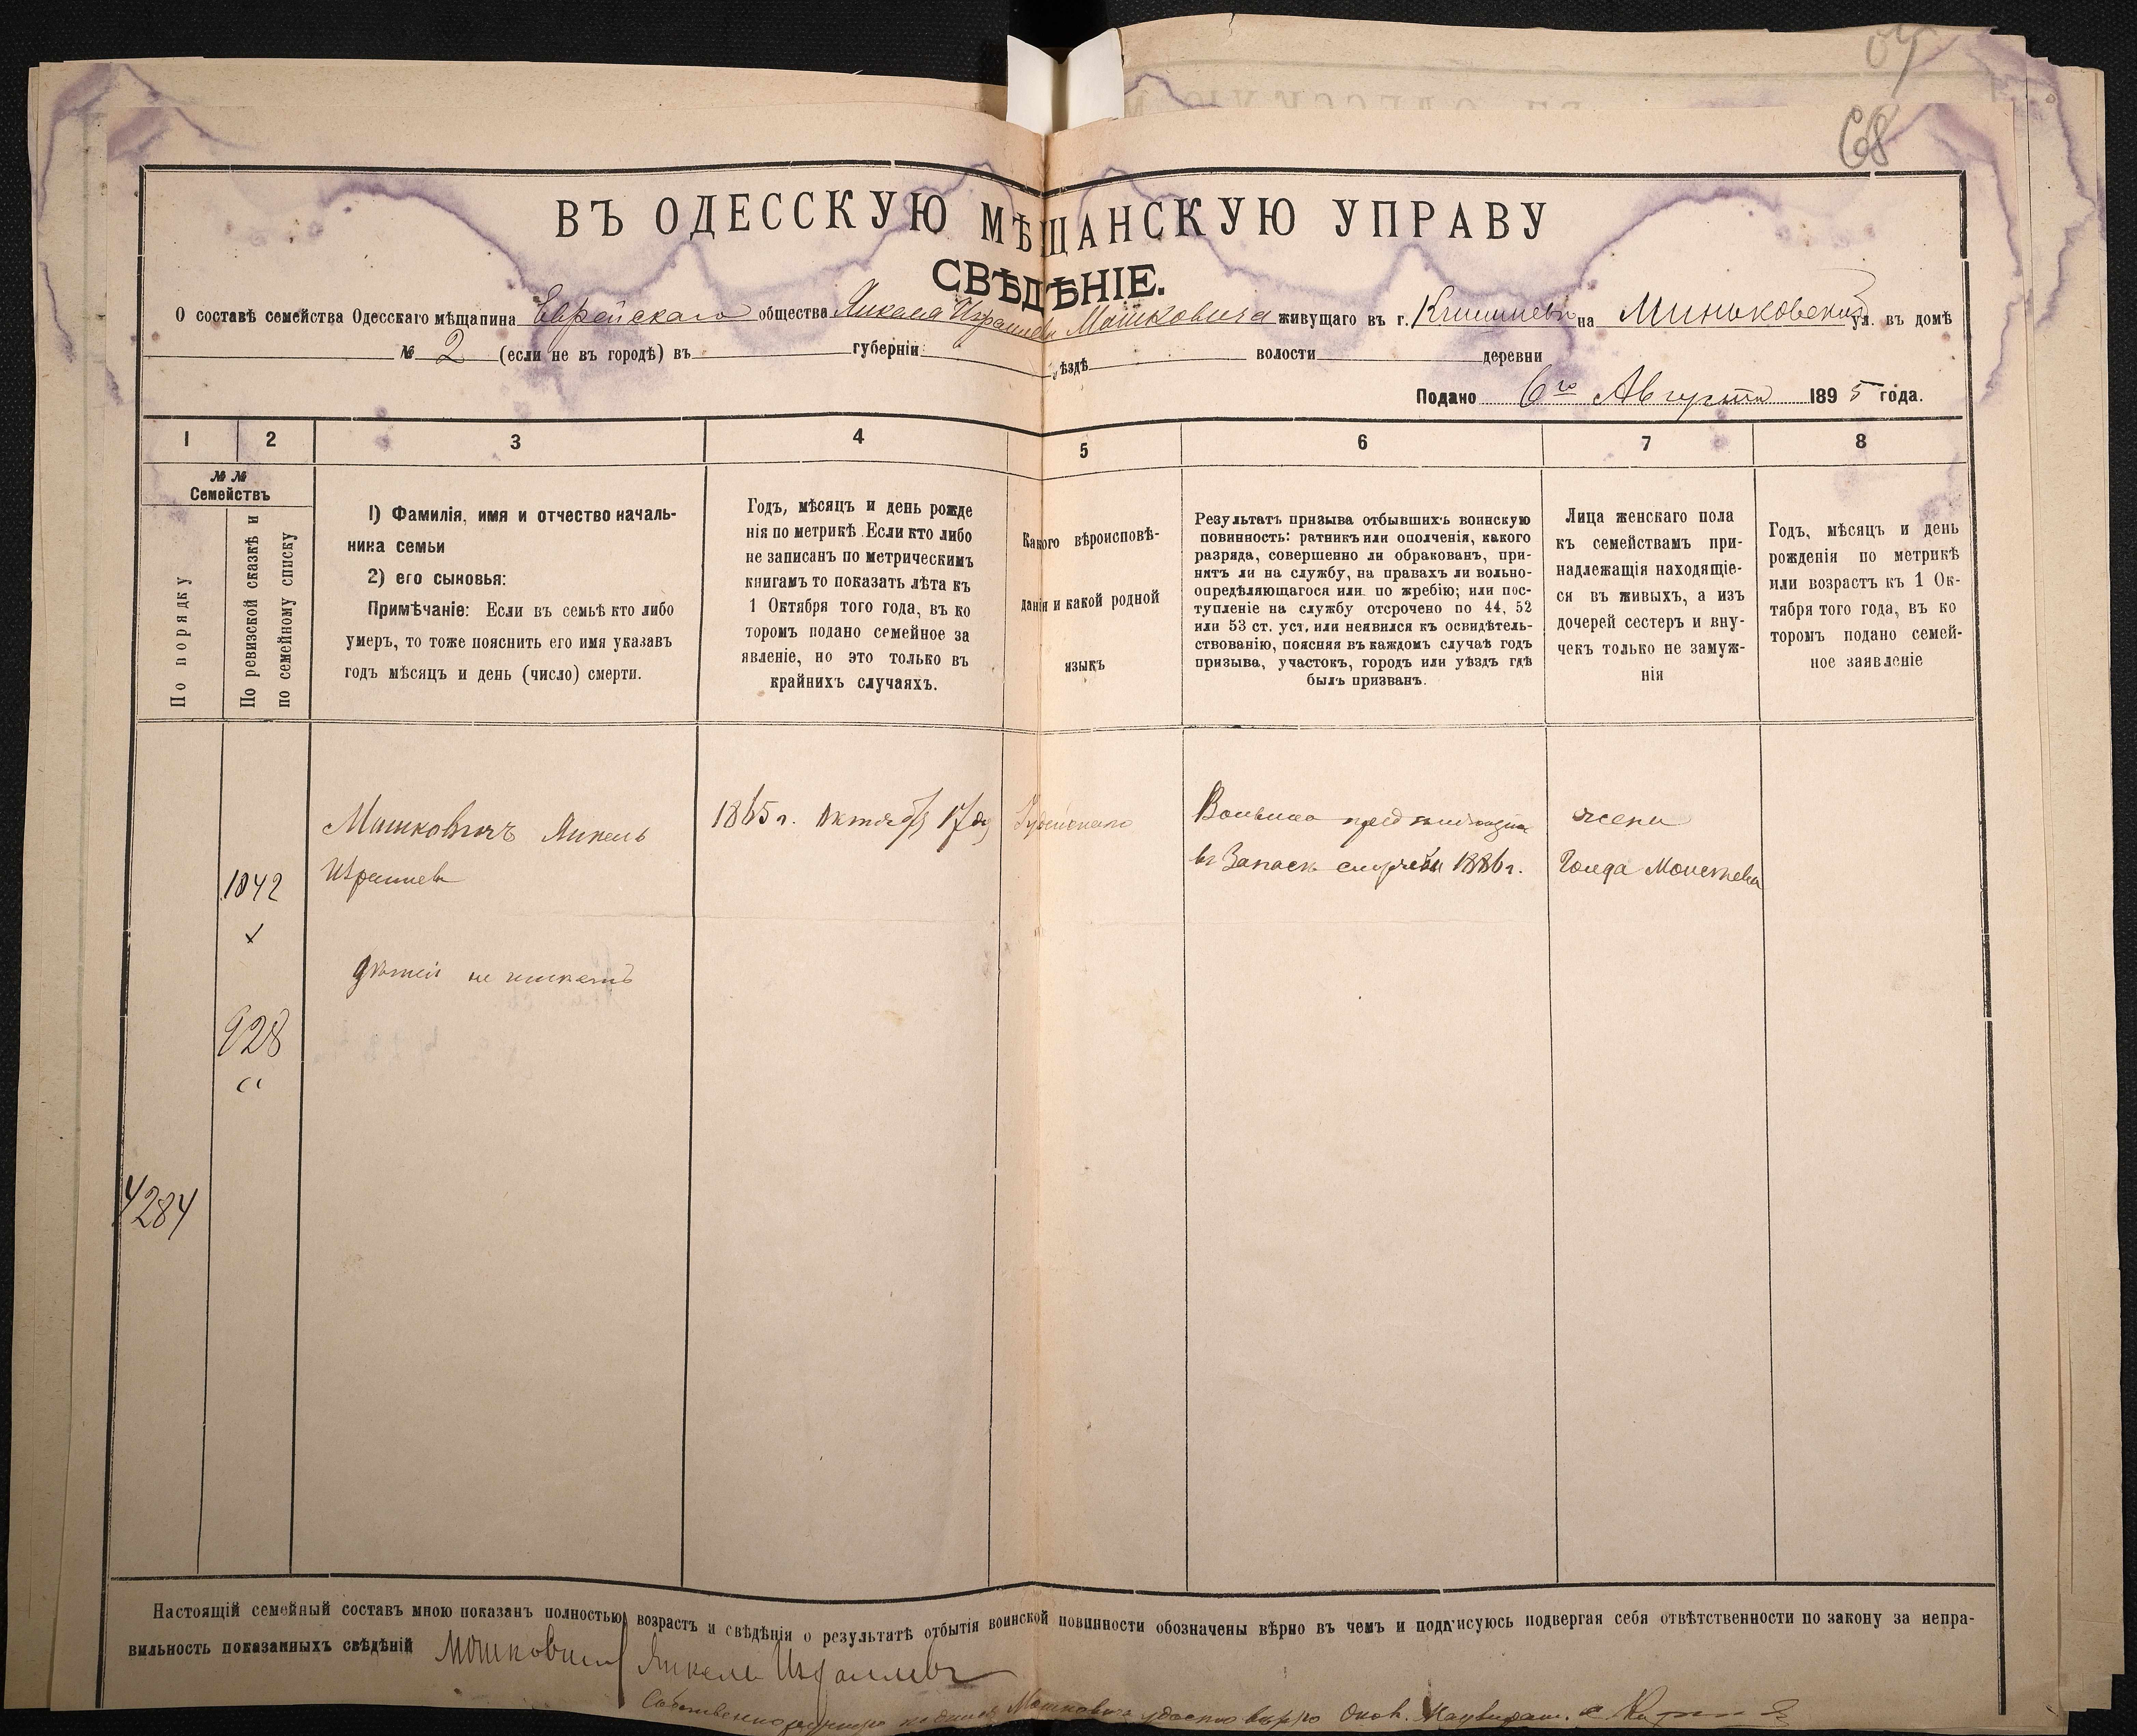 68
ВЪ ОДЕССКУЮ МѢЩАНСКУЮ УПРАВУ
СВѢДѢНІЕ.
О составѣ семейства Одесскаго мѣщанина Еврейскаго общества Янкеля Израилева Мошковича живущаго въ г. Кишиневѣ на Миньковской ул. въ домѣ
№ 2 (если не въ городѣ) въ губерніи уѣздѣ волости деревни
Подано 6го Августа 1895 года.
1 2 3 4 5 6 7 8
№ №
Семействъ
По порядку
По ревизской сказкѣ и
по семейному списку
1) Фамилія, имя и отчество началь-
ника семьи
2) его сыновья:
Примѣчаніе: Если въ семьѣ кто либо
умеръ, то тоже пояснить его имя указавъ
годъ мѣсяцъ и день (число) смерти.
Годъ, мѣсяцъ и день рожде
нія по метрикѣ. Если кто либо
не записанъ по метрическимъ
книгамъ то показать лѣта къ
1 Октября того года, въ ко
торомъ подано семейное за
явленіе, но это только въ
крайнихъ случаяхъ.
Какого вѣроисповѣ-
данія и какой родной
языкъ
Результатъ призыва отбывшихъ воинскую
повинность: ратникъ или ополченія, какого
разряда, совершенно ли обракованъ, при-
нятъ ли на службу, на правахъ ли вольно-
опредѣляющагося или по жребію; или пос-
тупленіе на службу отсрочено по 44, 52
или 53 ст. уст, или неявился къ освидѣтель-
ствованію, поясняя въ каждомъ случаѣ годъ
призыва, участокъ, городъ или уѣздъ гдѣ
былъ призванъ.
Лица женскаго пола
къ семействамъ при-
надлежащія находящіе-
ся въ живыхъ, а изъ
дочерей сестеръ и вну-
чекъ только не замуж-
нія
Годъ, мѣсяцъ и день
рожденія по метрикѣ
или возрастъ къ 1 Ок-
тября того года, въ ко
торомъ подано семей-
ное заявленіе
Мошковичъ Янкель
Израилевъ
1865 г. Октября 17 дн
Іудейскаго
въ Запасъ службы 1886 г.
жена
Голда Моисеева
1042
дѣтей не имѣетъ
928
4284
Настоящій семейный составъ мною показанъ полностью, возрастъ и свѣдѣнія о результатѣ отбытія воинской повинности обозначены вѣрно въ чемъ и подписуюсь подвергая себя отвѣтственности по закону за непра-
вильность показанныхъ свѣдѣній Мошковичъ Янкель Израилевъ
Собственноручную подпись Мошковича удостовѣряю